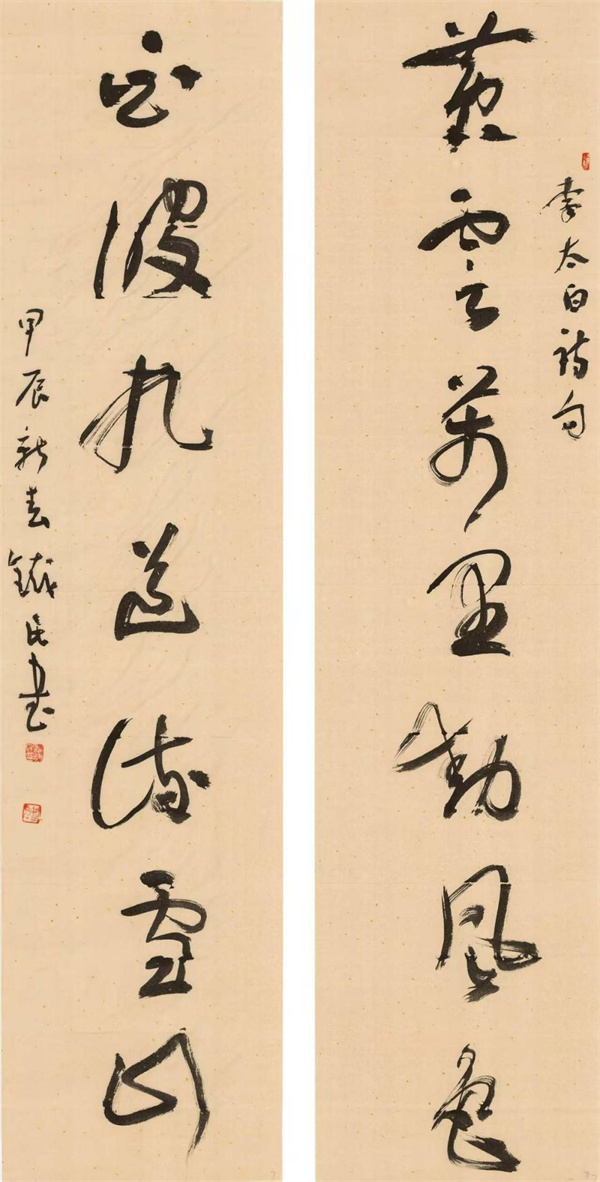 李太白诗句
黄雲萬里動風色
白波九道流雪山
甲辰新春鐵民書